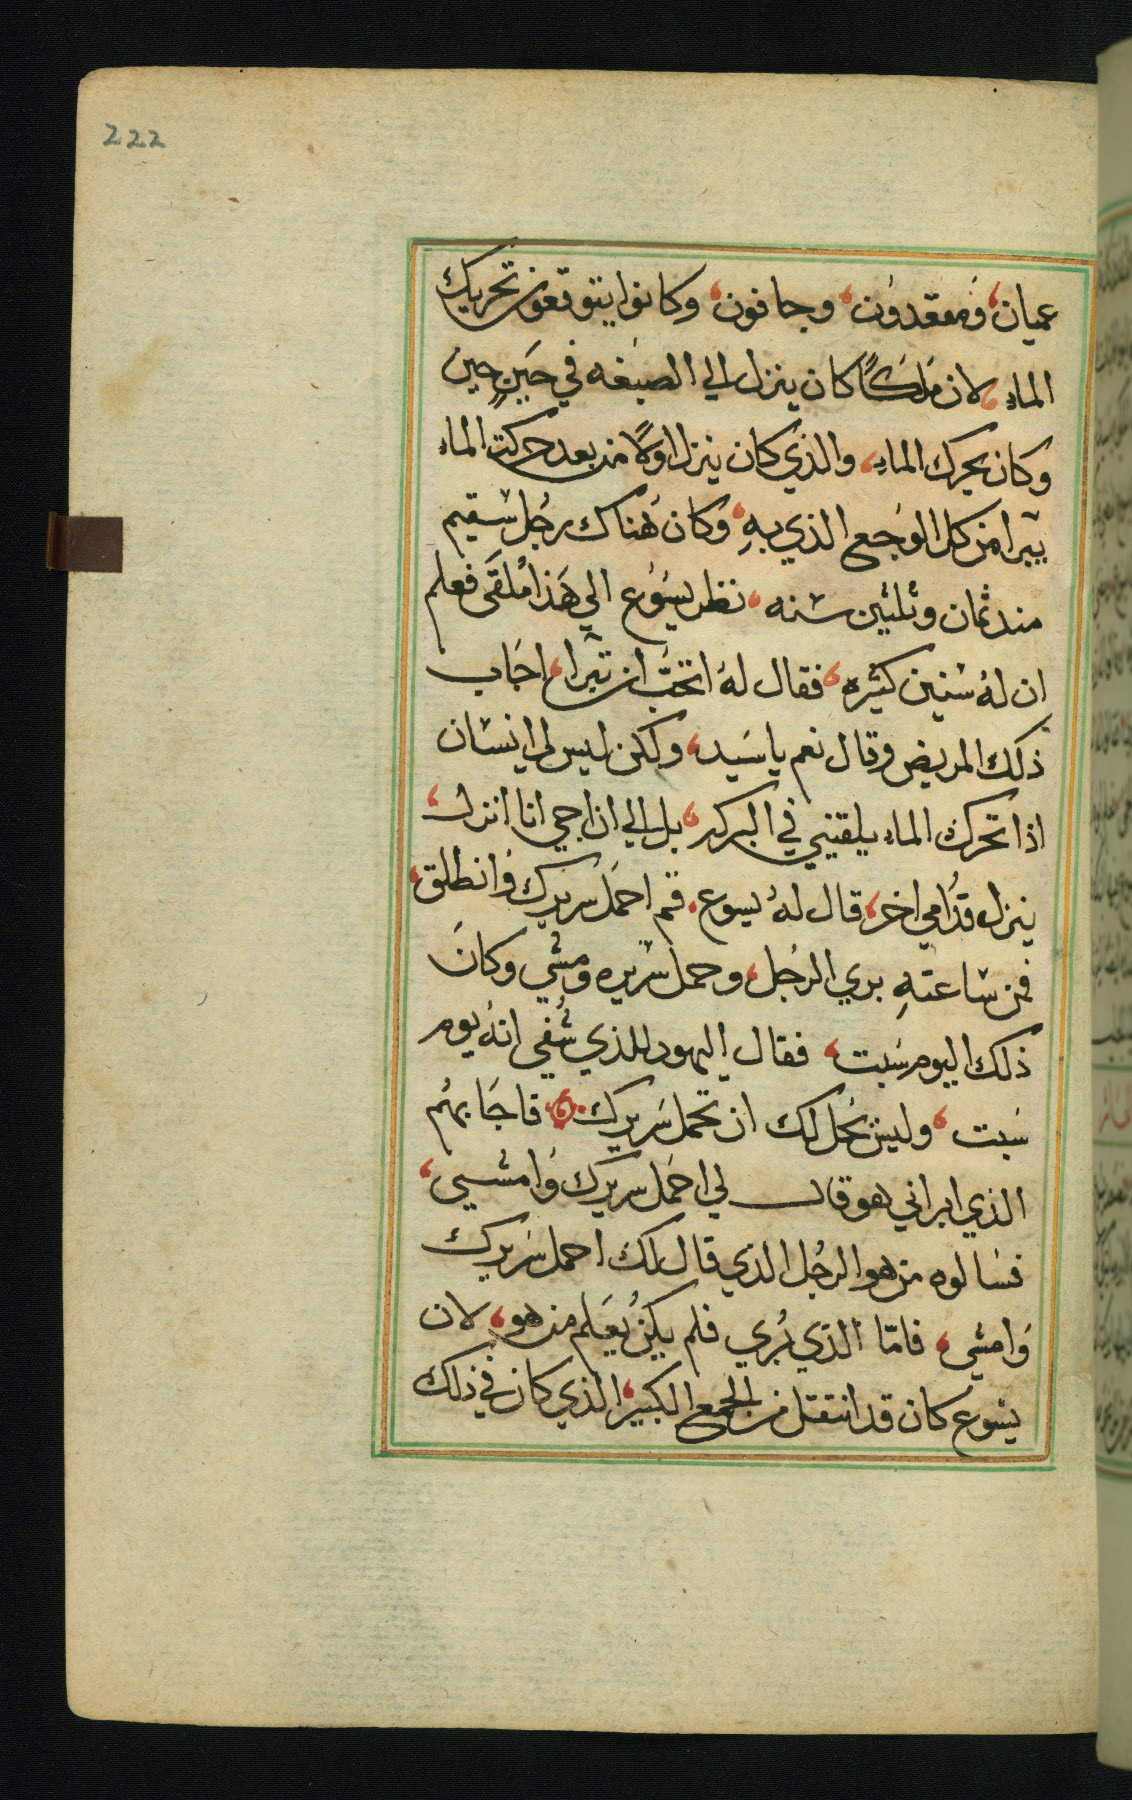 222
عميان، ومقعدون، وجافون، وكانوا يتوقعون تحريك
الماء، لان ملكًا كان ينزل الي الصبغه في حينٍ حين
وكان يحرك الماء، والذي كان ينزل اولًا من بعد حركت الماء
يبرا من كل الوجع الذي بهِ، وكان هُناك رجُل سقيم
مند ثمان وثلثين سنه، نظر يسُوع الي هَذا مُلقَى فعلم
ان لهُ سنين كثيره، فقال لهُ اتحبّ ان تبرا، اجَاب
ذلك المريض وقال نعم ياسَيد، ولكن ليس لي انسَان
اذا تحرك الماء يلقيني في البركه، بل الي ان اجي انا انزل،
ينزل قدُامي اخر، قال لهُ يسوع، قم احمَل سريرك وَانطلق،
فمن سَاعتهِ بري الرجُل، وحمل سَريره ومشُي وكانَ
ذلك اليوم سَبت، فقال اليهود للذي شُفي انهُ يوم
سَبت، وليسَ يحَل لك ان تحمل سَريرك، فاجَابهُم
الذي ابراني هو قال لي احمَل سريرك وَامشي،
فسَالوه من هو الرجُل الذي قال لك احمل سَريرك
وَامشي، فامّا الذي بُري فلم يكن يُعَلم من هو، لان
يسُوع كان قد انتقل من الجمع الكبير، الذي كان في ذلك